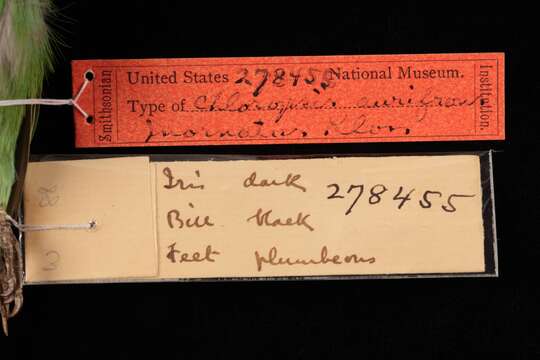 Smithsonian
United States 278455 National Museum.
Type of Chloropsis aurifrons
inornatus Kloss
Institution.
Iris dark
Bill black
Feet plumbeous
278455